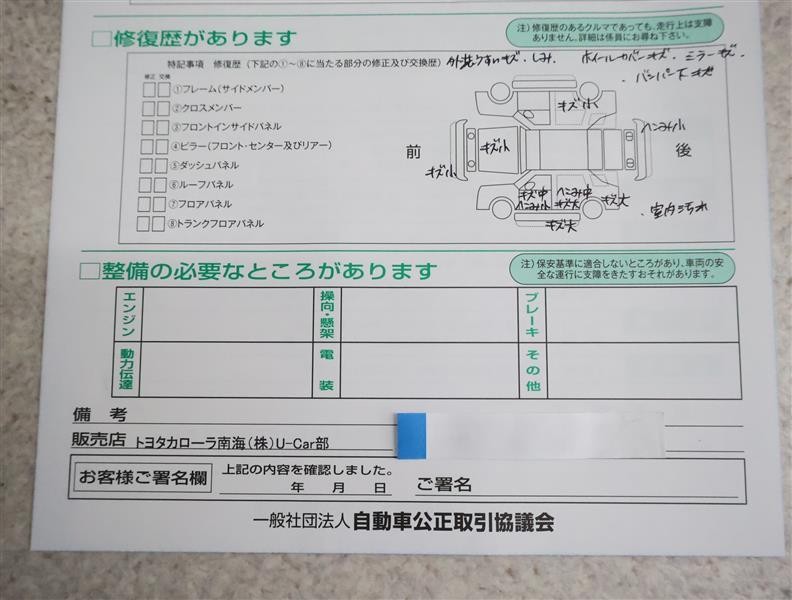 □修復歴があります
注）修復歴のあるクルマであっても、走行上は支障
ありません。詳細は係員にお尋ね下さい。
特記事項 修復歴（下記の①～⑧に当たる部分の修正及び交換歴）
外装うすいキズ・しみ ホイールカバーキズ・ミラーキズ・
・バンパー下キズ
修正 交換
①フレーム（サイドメンバー）
②クロスメンバー
③フロントインサイドパネル
④ピラー（フロント・センター及びリアー）
⑤ダッシュパネル
⑥ルーフパネル
⑦フロアパネル
⑧トランクフロアパネル
キズ小
ヘコミ小
前
キズ小
後
キズ小
キズ中
ヘコミ小
ヘコミ中
キズ大
キズ大
キズ大
・室内汚れ
□整備の必要なところがあります
注）保安基準に適合しないところがあり、車両の安
全な運行に支障をきたすおそれがあります。
エンジン
操向・懸架
ブレーキ
動力伝達
電装
その他
備考
販売店 トヨタカローラ南海（株）U-Car部
お客様ご署名欄
上記の内容を確認しました。
年 月 日 ご署名
一般社団法人 自動車公正取引協議会